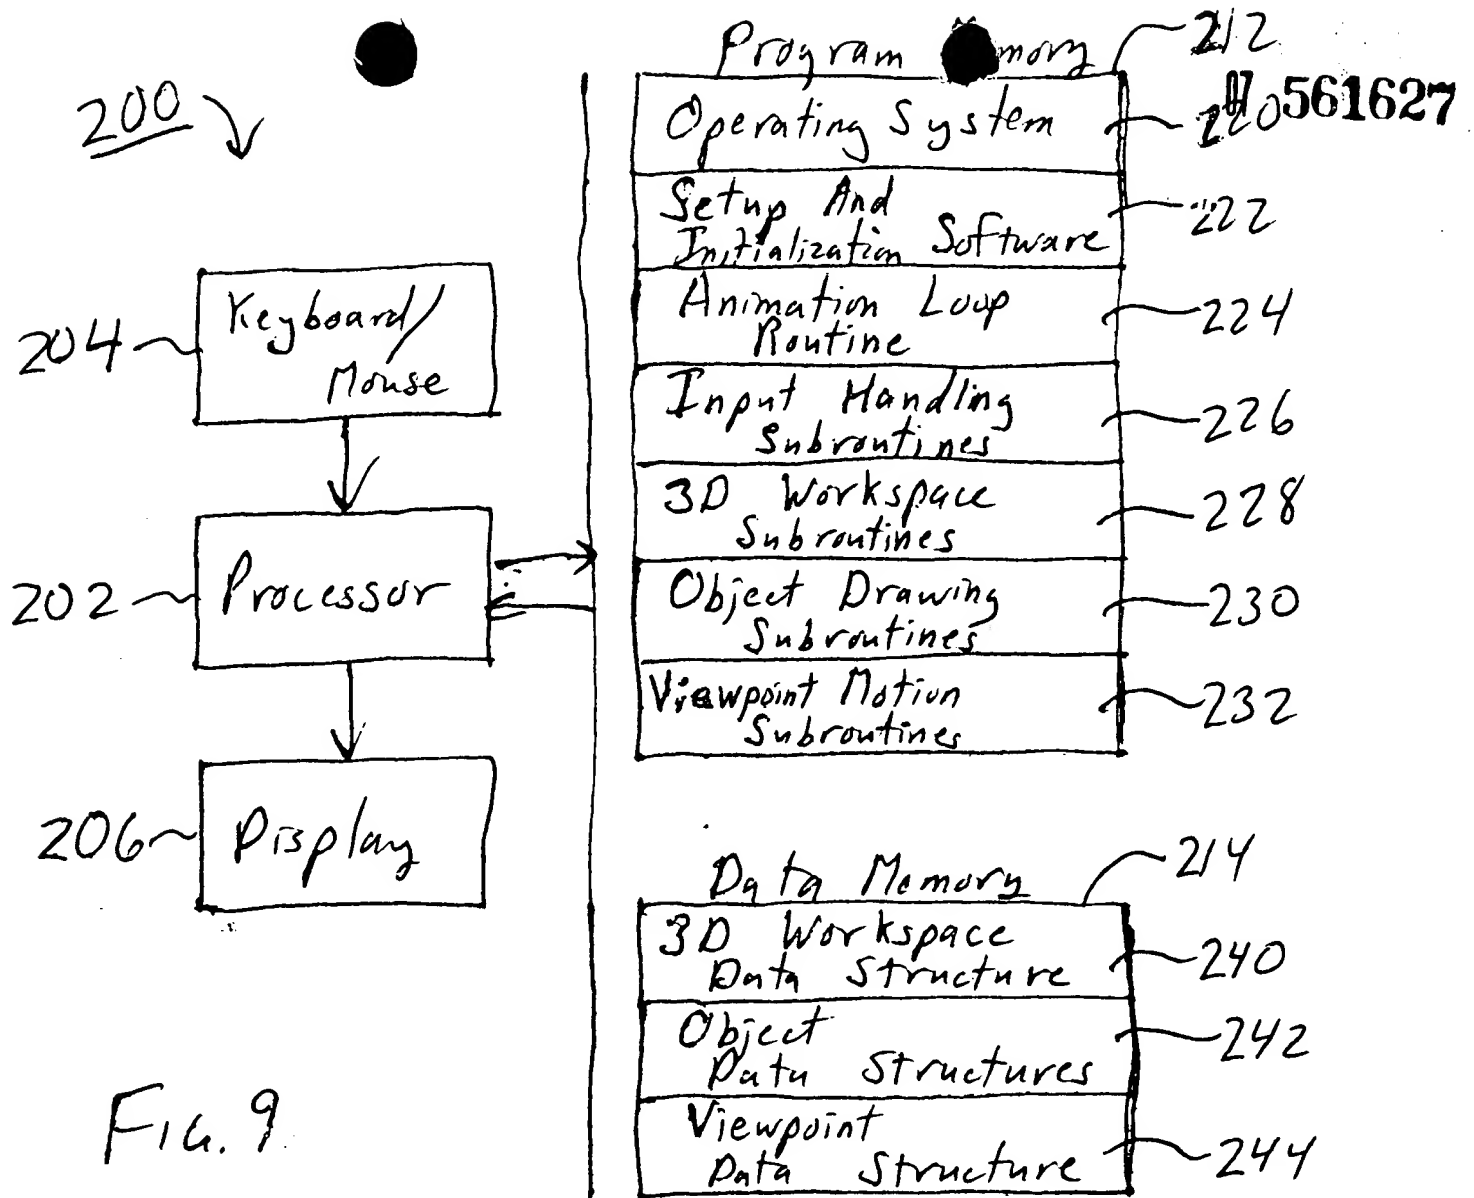 200
Keyboard/
Mouse
204
Processor
202
Display
206
Fig. 9
Program mory
212
07 561627
Operating System
220
Setup And
Initialization Software
222
Animation Loop
Routine
224
Input Handling
Subroutines
226
3D Workspace
Subroutines
228
Object Drawing
Subroutines
230
Viewpoint Motion
Subroutines
232
Data Memory
214
3D Workspace
Data Structure
240
Object
Data Structures
242
Viewpoint
Data Structure
244